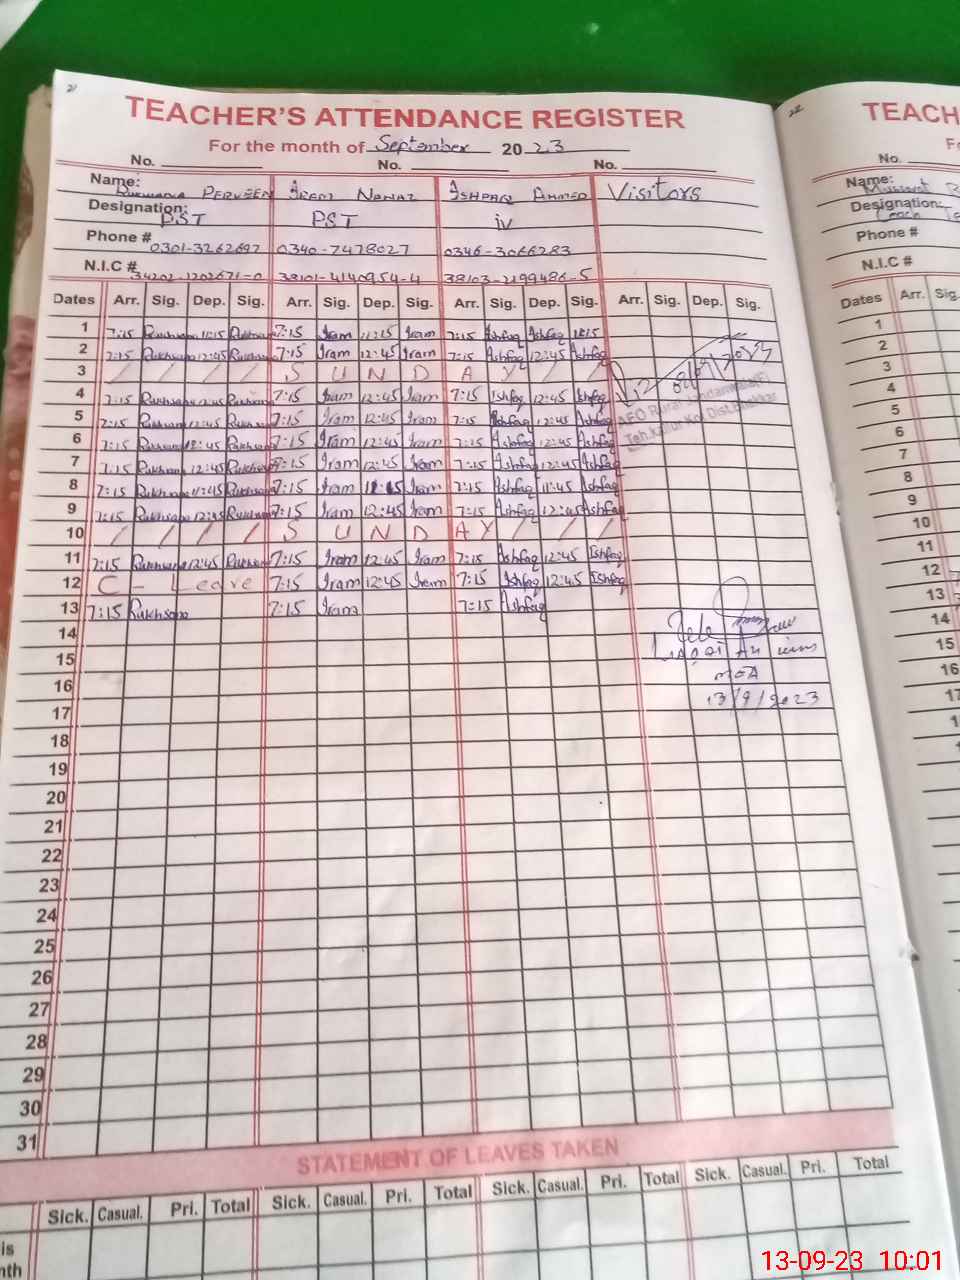 21
TEACHER'S ATTENDANCE REGISTER
For the month of September 2023
No. No. No.
Name: Rukhsana PERVEEN Iram Nawaz ISHFAQ AHMED Visitors
Designation: PST PST iv
Phone # 0301-3262697 0340-7478027 0346-3066283
N.I.C # 34202-1202671-0 38101-4140954-4 38103-2199486-5
Dates Arr. Sig. Dep. Sig. Arr. Sig. Dep. Sig. Arr. Sig. Dep. Sig. Arr. Sig. Dep. Sig.
1 7:15 Rukhsana 11:15 Rukhsana 7:15 Iram 11:15 Iram 7:15 Ishfaq Ishfaq
2 7:15 Rukhsana 12:45 Rukhsana 7:15 Iram 12:45 Iram 7:15 Ishfaq 12:45 Ishfaq
3 / / / / S U N D A Y / /
4 7:15 Rukhsana 12:45 Rukhsana 7:15 Iram 12:45 Iram 7:15 Ishfaq 12:45 Ishfaq
5 7:15 Rukhsana 12:45 Rukhsana 7:15 Iram 12:45 Iram 7:15 Ishfaq 12:45 Ishfaq
6 7:15 Rukhsana 12:45 Rukhsana 7:15 Iram 12:45 Iram 7:15 Ishfaq 12:45 Ishfaq
7 7:15 Rukhsana 12:45 Rukhsana 7:15 Iram 12:45 Iram 7:15 Ishfaq 12:45 Ishfaq
8 7:15 Rukhsana 11:45 Rukhsana 7:15 Iram Iram 7:15 Ishfaq 11:45 Ishfaq
9 7:15 Rukhsana 12:45 Rukhsana 7:15 Iram 12:45 Iram 7:15 Ishfaq 12:45 Ishfaq
10 / / / / S U N D A Y / / /
11 7:15 Rukhsana 12:45 Rukhsana 7:15 Iram 12:45 Iram 7:15 Ishfaq 12:45 Ishfaq
12 C - Leave 7:15 Iram 12:45 Iram 7:15 Ishfaq 12:45 Ishfaq
13 7:15 Rukhsana 7:15 Iram 7:15 Ishfaq
14
15
16
17
18
19
20
21
22
23
24
25
26
27
28
29
30
31
AEO
Teh. Kallur Kot Dist. Bhakkar
MEA
13/9/2023
STATEMENT OF LEAVES TAKEN
Sick. Casual. Pri. Total Sick. Casual. Pri. Total Sick. Casual. Pri. Total Sick. Casual. Pri. Total
is
nth
22
TEACH
No.
Name:
Designation:
Phone #
N.I.C #
Dates Arr. Sig.
1
2
3
4
5
6
7
8
9
10
11
12
13
14
15
16
17
13-09-23 10:01